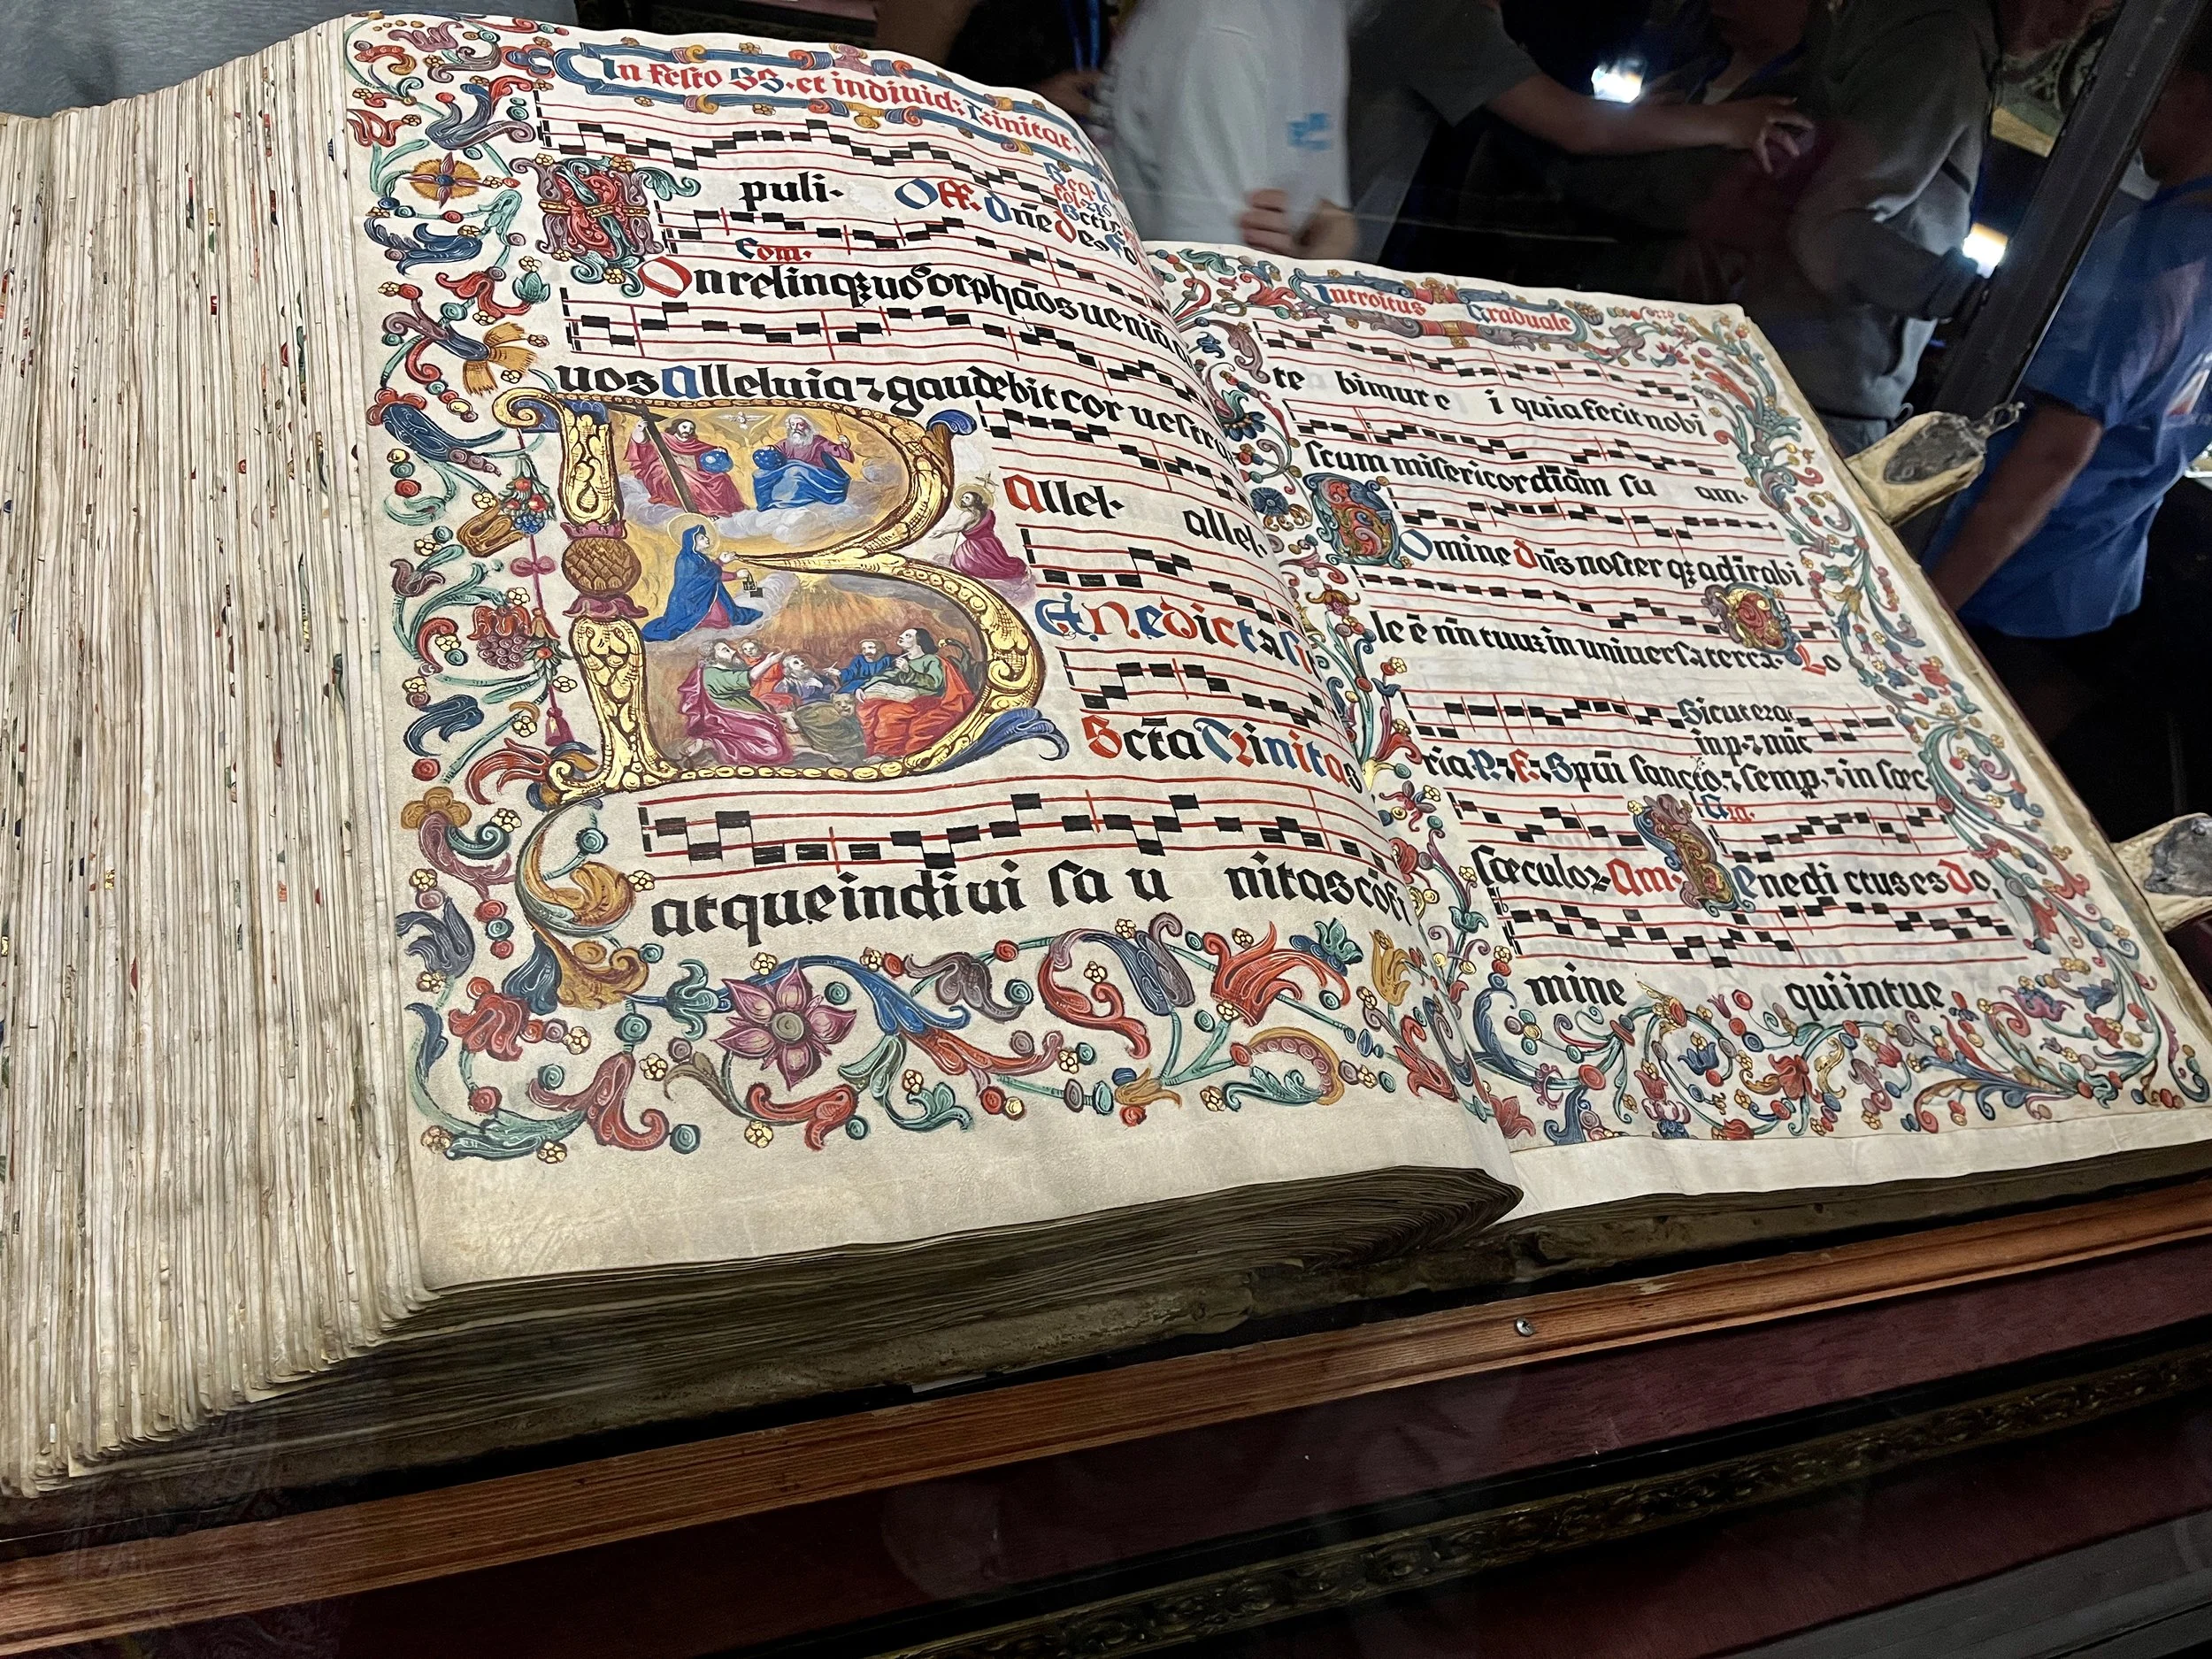 In Festo SS. et indiuid: Trinitat.
puli. Off. Dñe Des
Com.
On relinqz uos orphãos ueniã
uos Alleluia ⁊ gaudebit cor uestrũ
Allel. allel.
Enedicta si
Scta Trinitas
atque indiui sa u nitas cõfi
Introitus Graduale
te bimur e i quia fecit nobi
scum misericordiam su am.
Omine Dñs noster qz admirabi
le ẽ nñ tuuz in uniuersa terra. Lo
Sicut erat
in p. ⁊ nũc
ria P. ⁊ F. ⁊ Spũi sancto, ⁊ semp, ⁊ in sæc
sæculoꝝ Am. Enedi ctus es Do,
mine qui intue